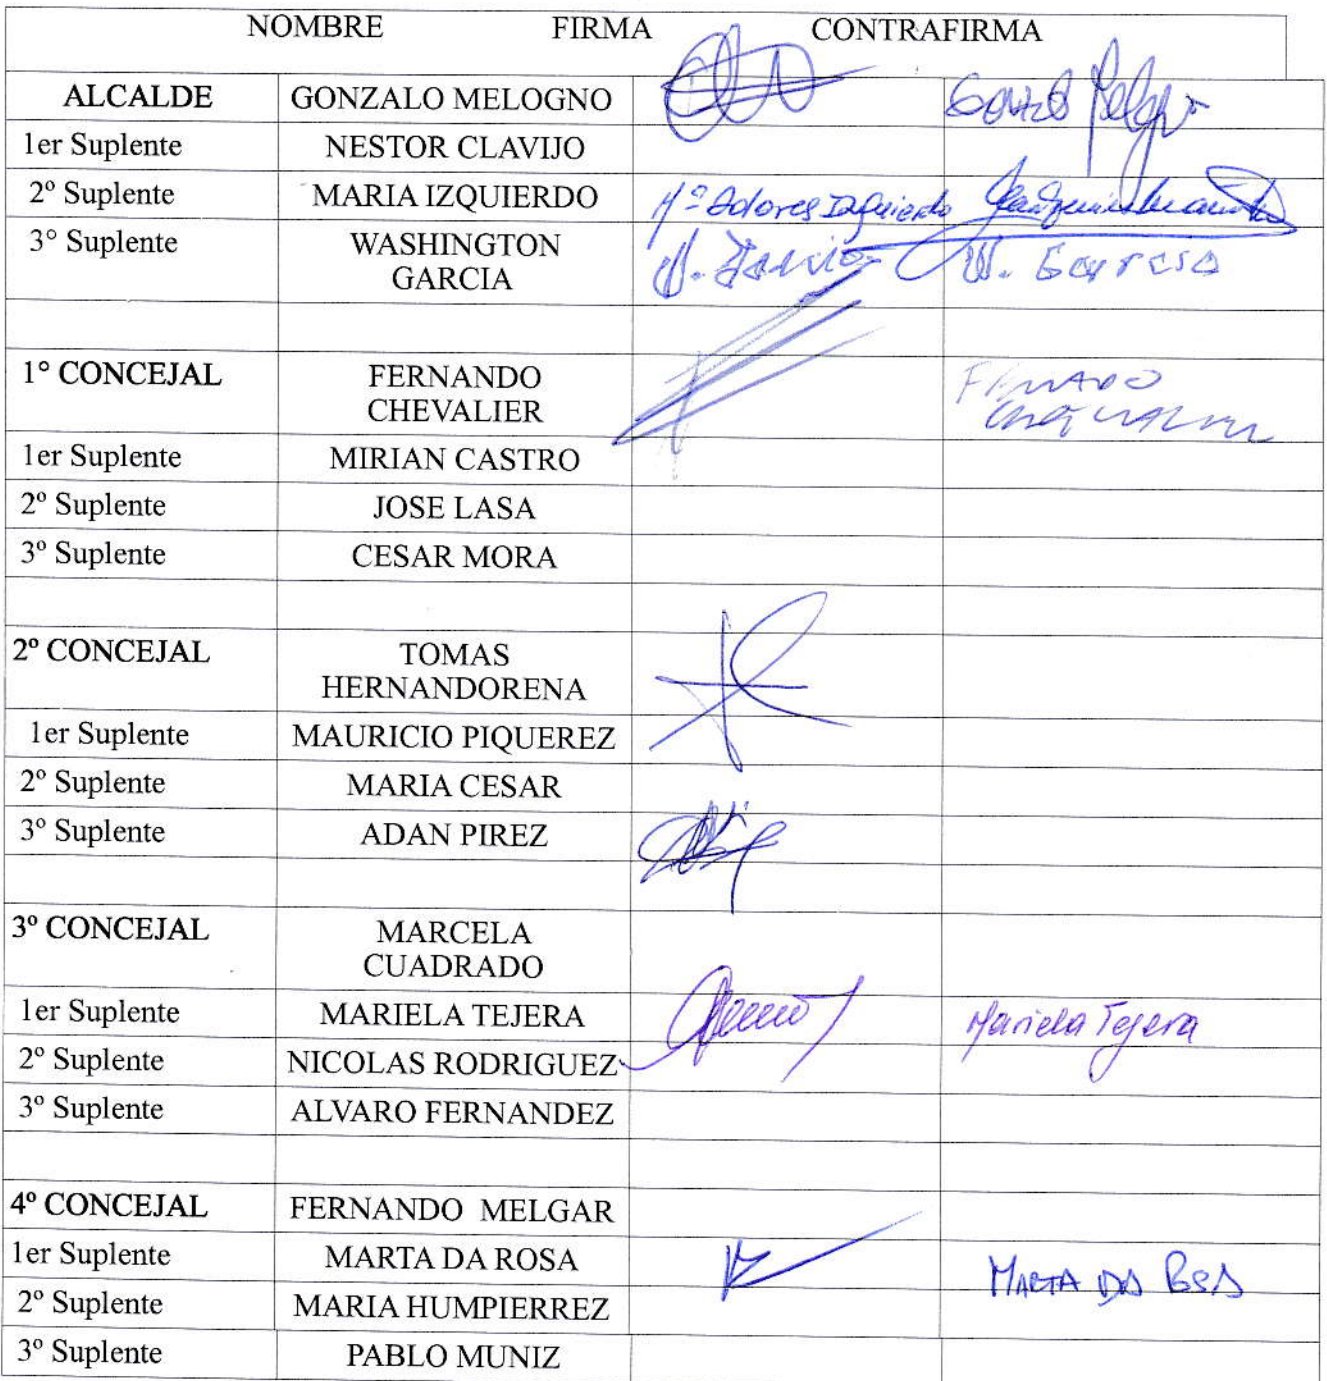 NOMBRE FIRMA CONTRAFIRMA
ALCALDE GONZALO MELOGNO
1er Suplente NESTOR CLAVIJO
2º Suplente MARIA IZQUIERDO Mª Dolores Izquierdo
3° Suplente WASHINGTON
GARCIA W. Garcia W. Garcia
1° CONCEJAL FERNANDO
CHEVALIER
1er Suplente MIRIAN CASTRO
2º Suplente JOSE LASA
3º Suplente CESAR MORA
2º CONCEJAL TOMAS
HERNANDORENA
1er Suplente MAURICIO PIQUEREZ
2º Suplente MARIA CESAR
3º Suplente ADAN PIREZ
3º CONCEJAL MARCELA
CUADRADO
1er Suplente MARIELA TEJERA Mariela Tejera
2º Suplente NICOLAS RODRIGUEZ
3º Suplente ALVARO FERNANDEZ
4º CONCEJAL FERNANDO MELGAR
1er Suplente MARTA DA ROSA MARTA DA ROSA
2º Suplente MARIA HUMPIERREZ
3º Suplente PABLO MUNIZ